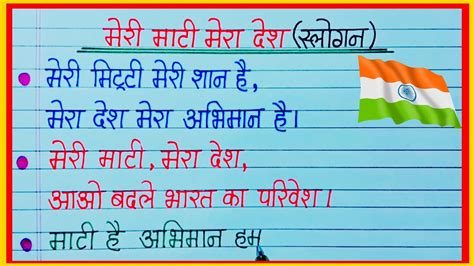 मेरी माटी मेरा देश (स्लोगन)
मेरी मिट्रटी मेरी शान है,
मेरा देश मेरा अभिमान है।
मेरी माटी, मेरा देश,
आओ बदले भारत का परिवेश।
माटी है अभिमान हम